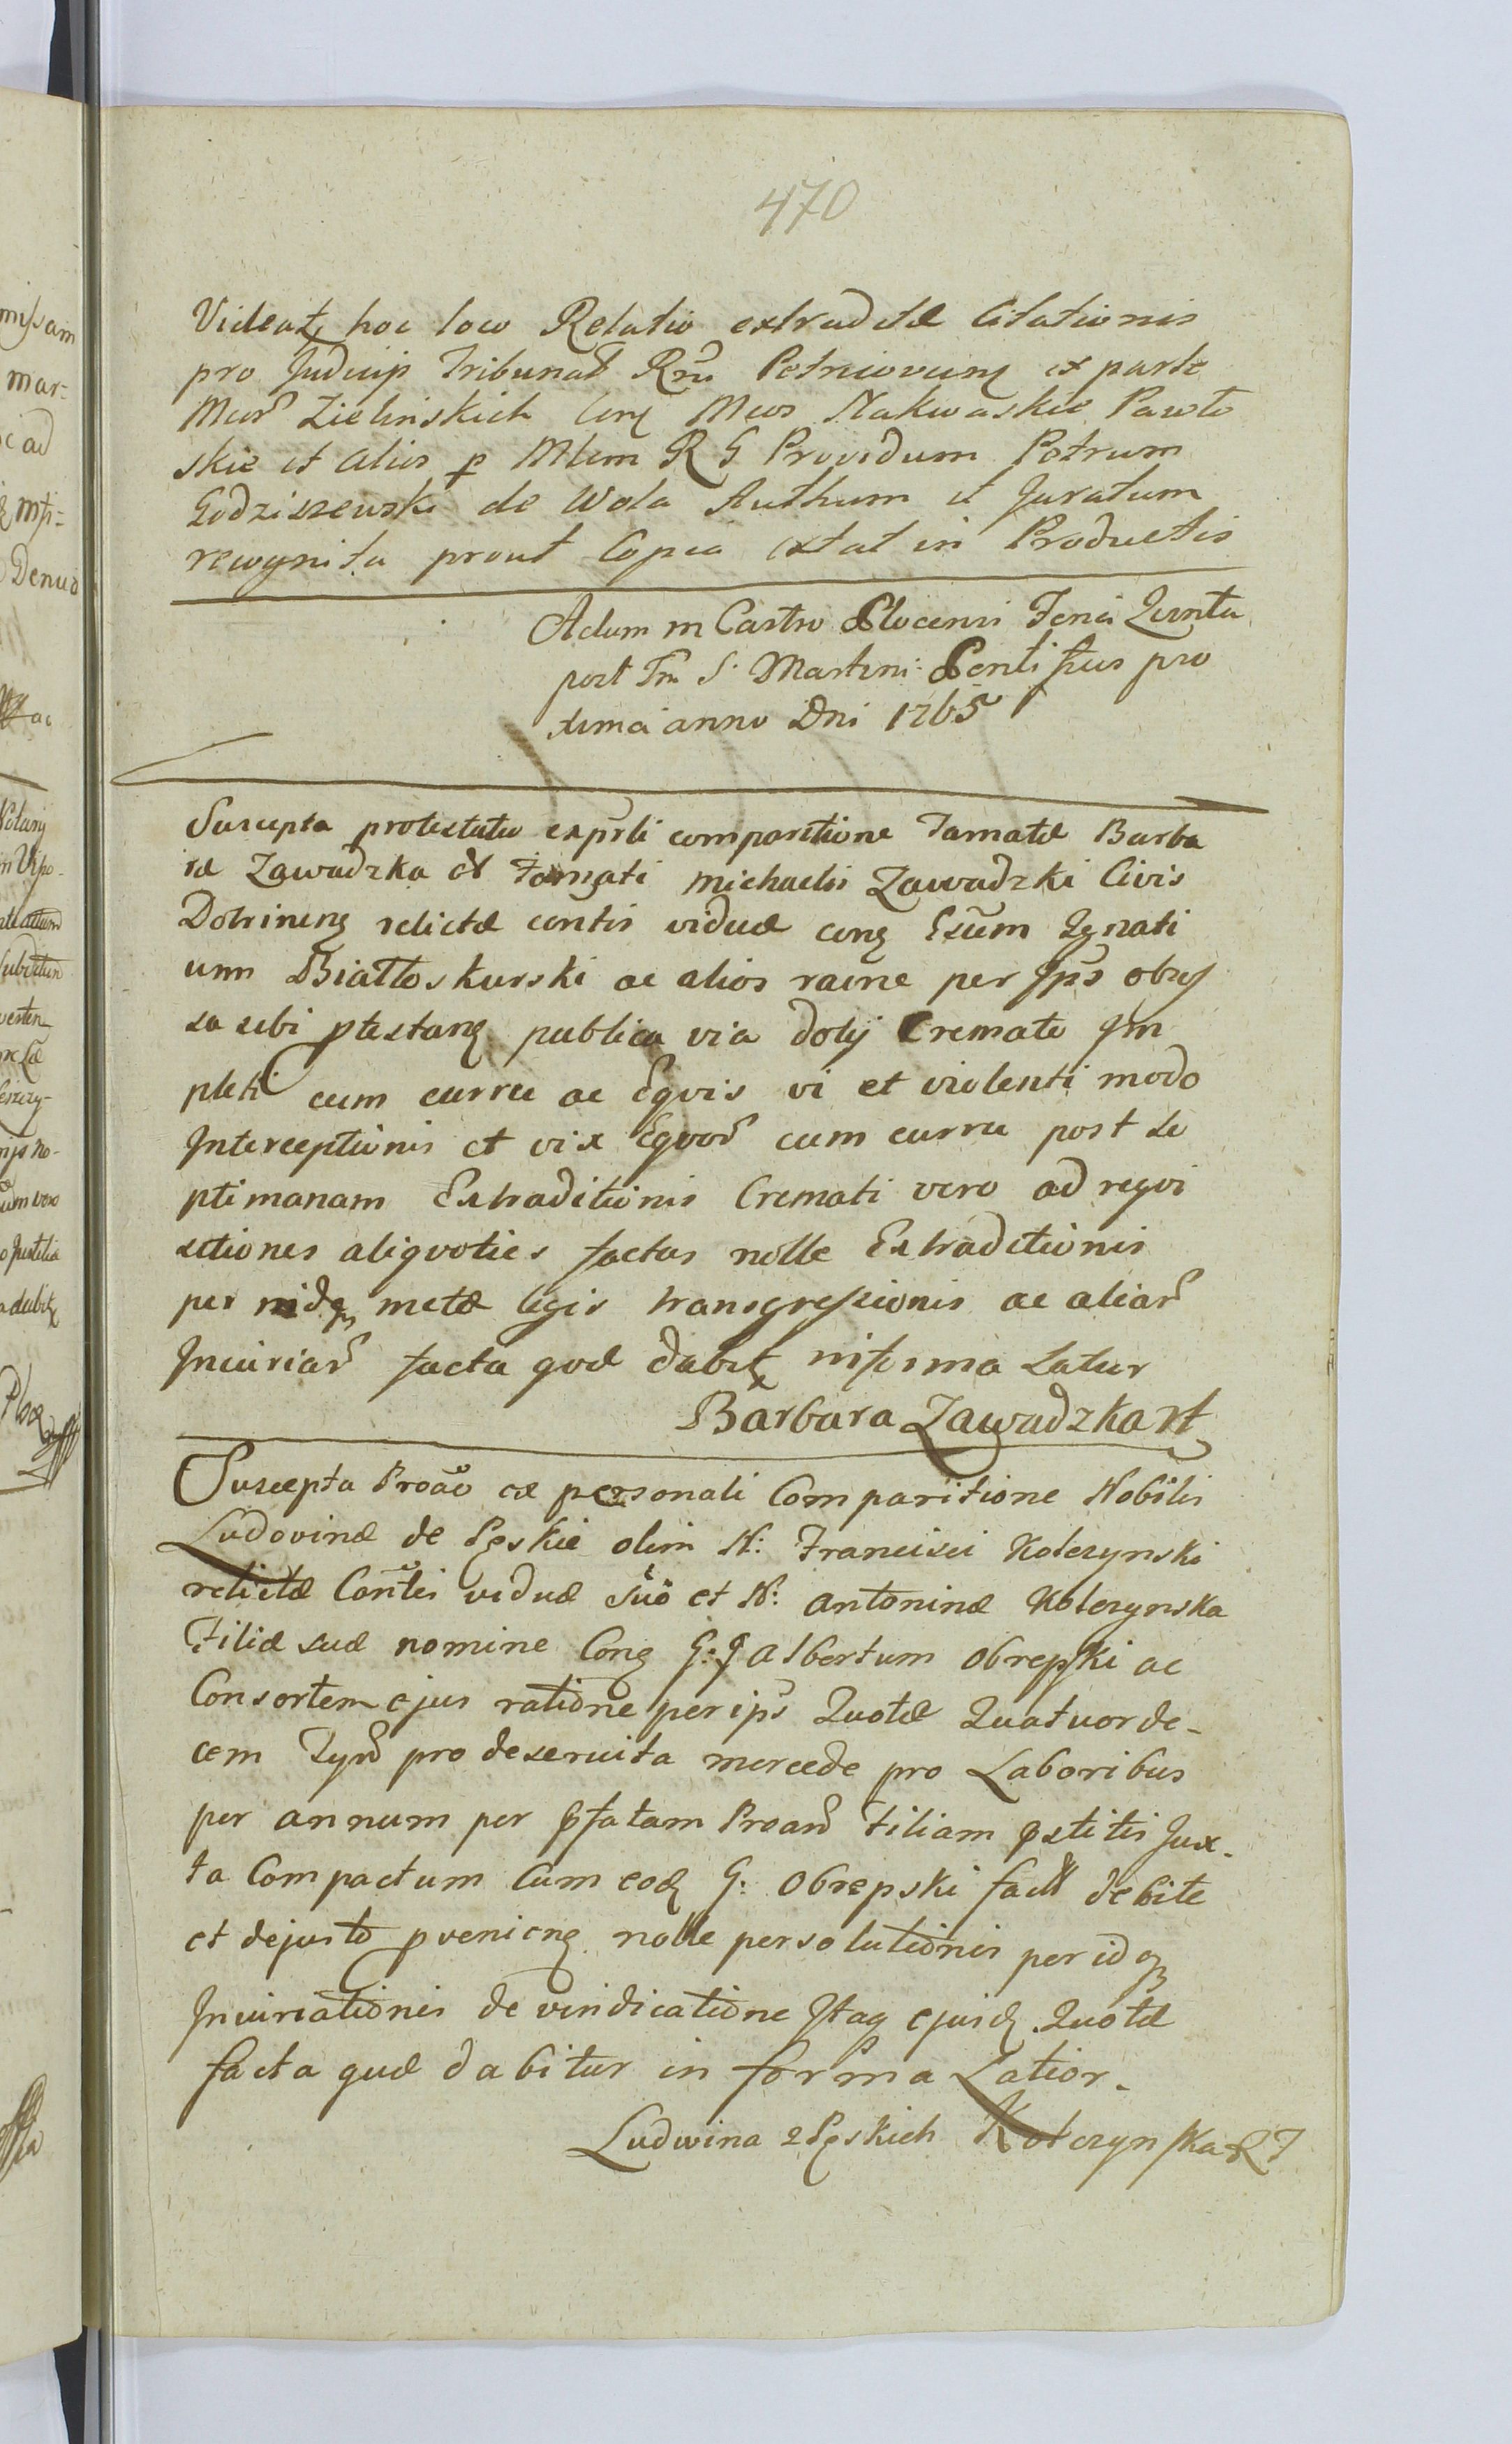 470
Videatr hoc loco Relatio extraditæ Citationis
pro Judicijs Tribunał Rni Petricovien ex parte
Mcor Zielinskich Con Mcos Nakwaskie Pawło
skie et alios p Mlem R G Providum Petrum
Godziszewski de Wola Authum et Juratum
recognita prout Copia extat in Productis
Actum in Castro Plocensi Feria Quinta
post Fm S. Martini Pontificis pro
xima anno Dni 1765
Suscepta protestatio ex prli comparitione Famatæ Barba
ræ Zawadzka et Famati Michaelis Zawadzki Civis
Dobrinens relictæ contis viduæ cong Gsum Ignati
um Białłoskurski ac alios raõne per Ips obvỹ
sa sibi ptestang publica via dolij Cremato Im
pleti cum curru ac Equis vi et violenti modo
Interceptionis et vix Equor cum curru post Se
ptimanam Extraditionis Cremati vero ad reqvi
sitiones aliqvoties factas nolle Extraditionis
per nidq metæ legis transgressionis ac aliar
Iniuriar facta qvæ dabitr in forma Latior
Barbara Zawadzka rt
Suscepta Proao ex personali Comparitione Nobilis
Ludovinæ de Pęskie olim N: Francisci Kolczynski
relictæ Contis viduæ suo et N: Antoninæ Kolczynska
Filiæ suæ nomine Cong G: J Albertum Obrępski ac
Consortem ejus ratione per ips Quotæ Quatuorde-
cem Tynf pro deservita mercede pro Laboribus
per annum per pfatam Proan Filiam pstitis Jux-
ta Compactum Cum eod G: Obrępski fact debite
et dejusto pvenieng nolle persolutionis per idq
Iniuriationis de vindicatione Itaq ejusd Quotæ
facta quæ dabitur in forma Latior.
Ludwina z Pęskich Kolczynska RT